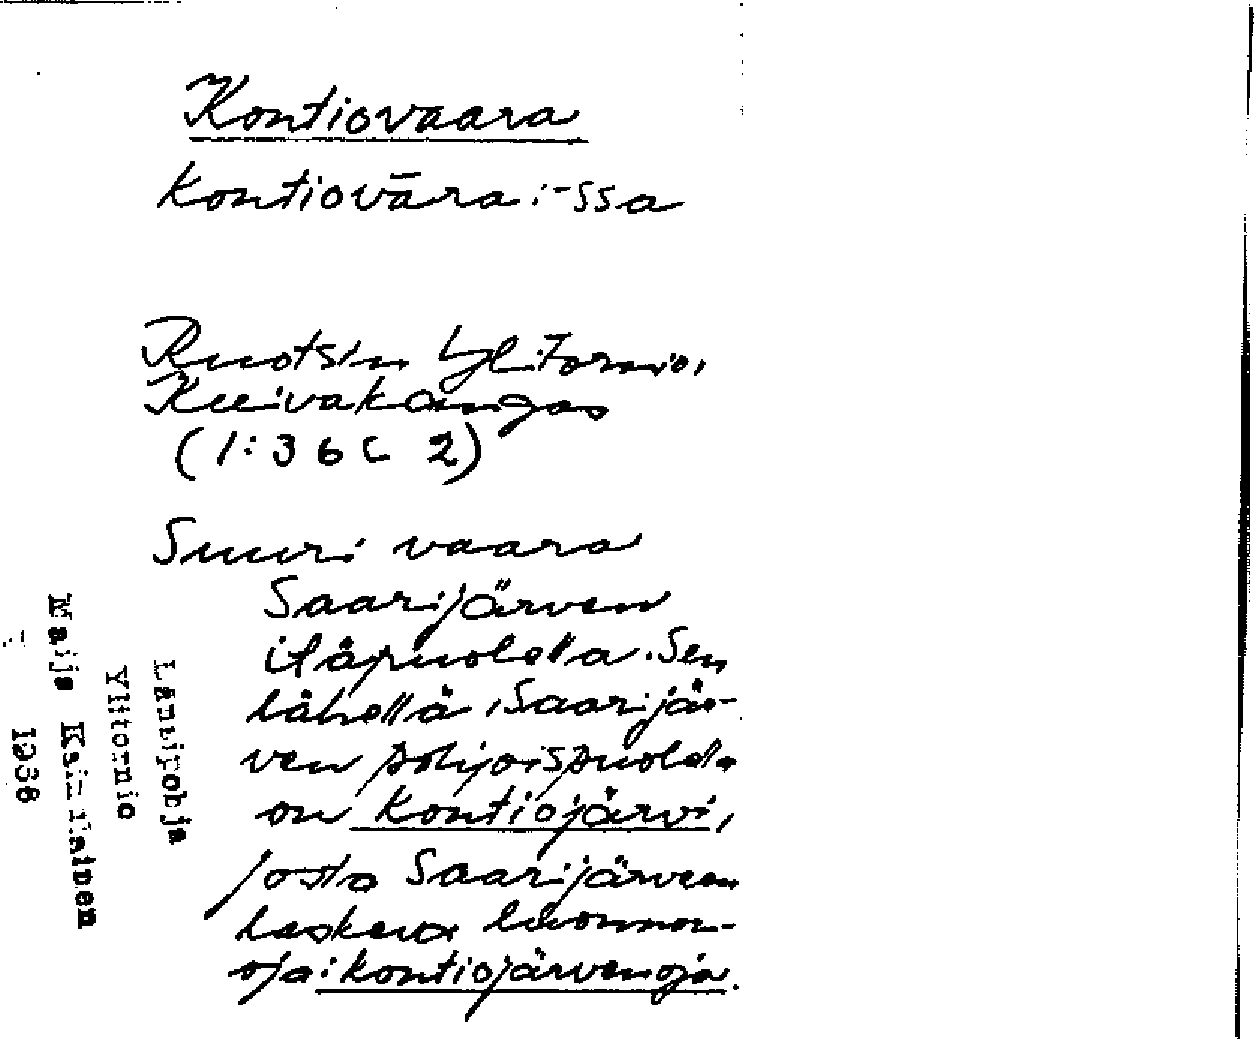 Kontiovaara
kontiovāra :-ssa
Ruotsin Ylitornio,
Kuivakangas
(1:36 C 2)
Suuri vaara
Saarijärven
itäpuolella. Sen
lähellä, Saarijär-
ven pohjoispuolella
on kontiojärvi,
josta Saarijärveen
laskeva luonnon-
oja: kontiojärvenoja.
Länsipohja
Ylitornio
Maija
19